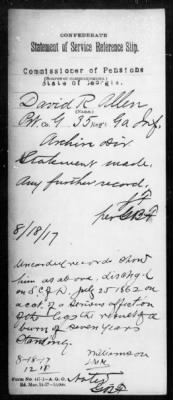 CONFEDERATE
Statement of Service Reference Slip.
Commissioner of Pensions
State of Georgia.
David R. Allen
(Name.)
Pvt. Co G 35 Reg. Ga Inf.
Archiv Div
Statement made.
Any further record.
8/18/17
Uncarded records show
him as above, discharged
on S C of D. July 25 1862 on
act. of a serious affection
of the legs the result of a
burn of seven years
standing.
8-18-17
1218
Williamson
Noted